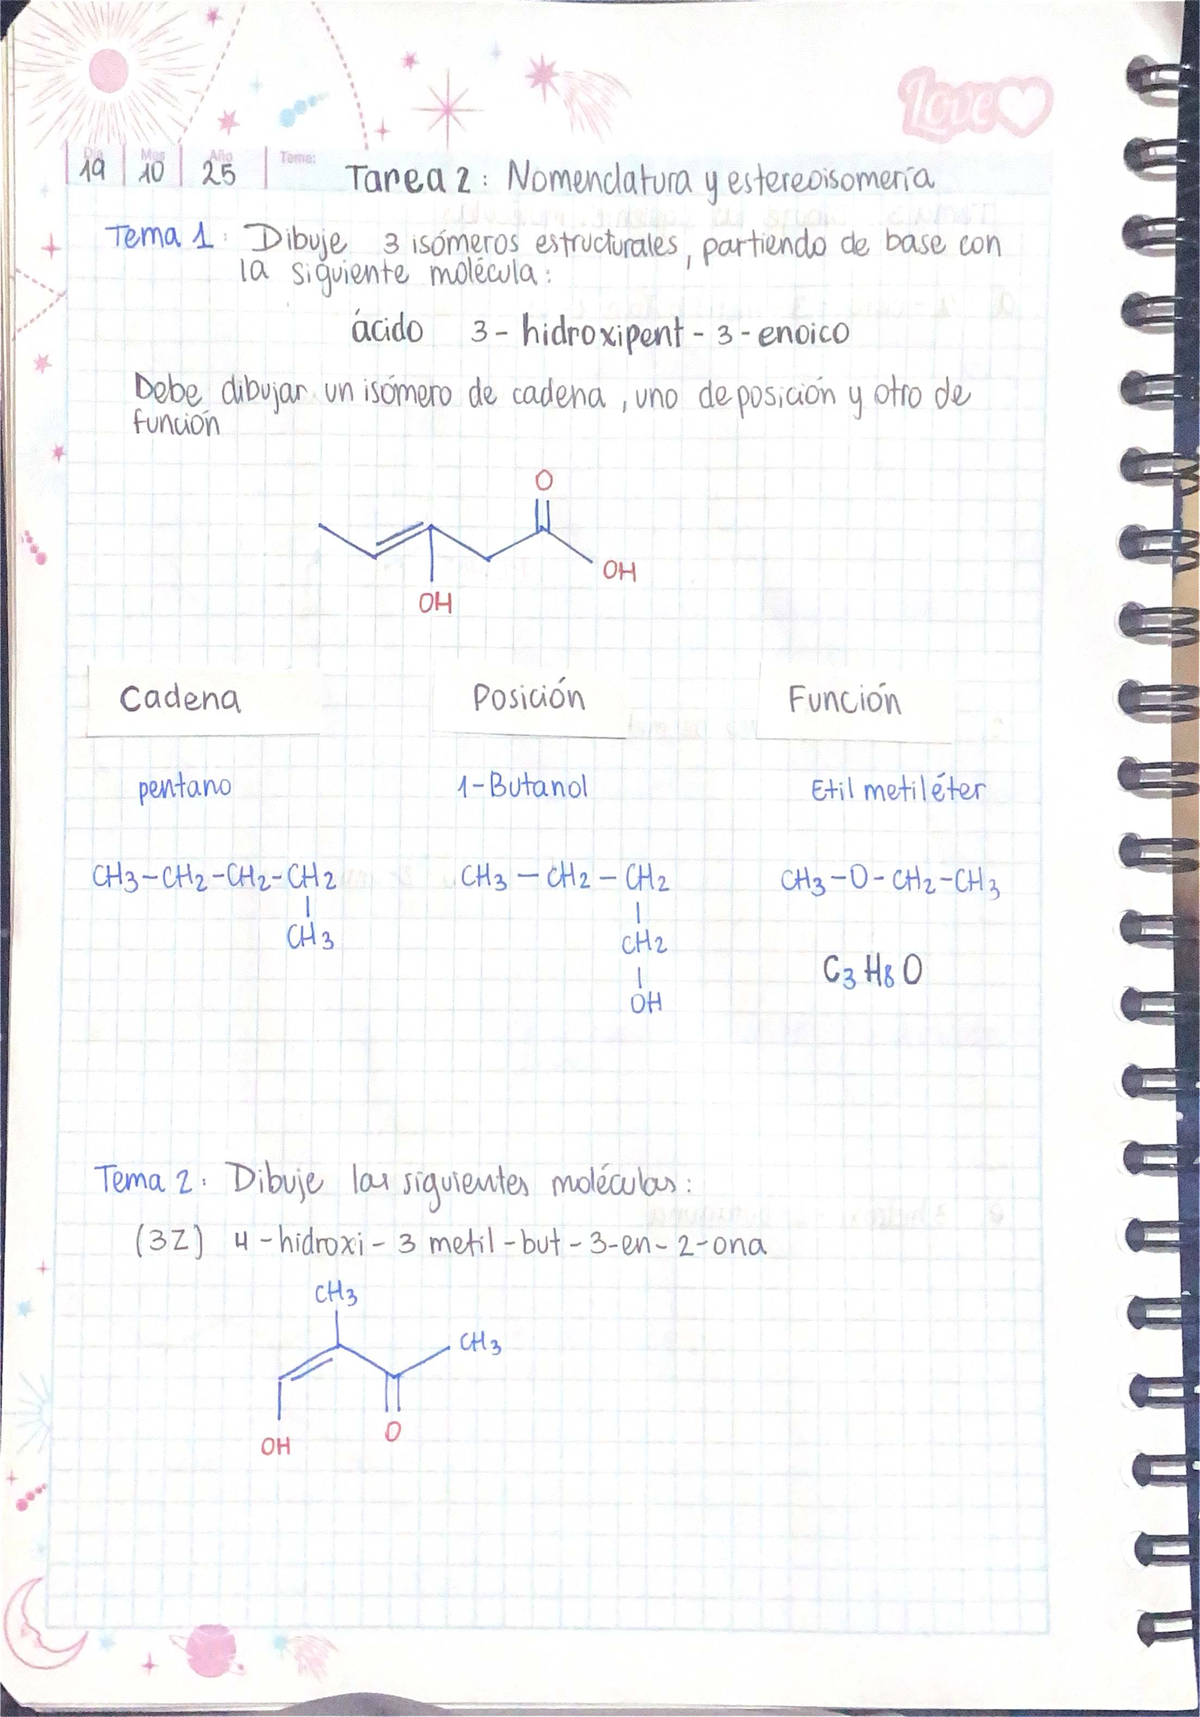 Love
Día Mes Año Tema:
19 10 25 Tarea 2: Nomenclatura y estereoisomería
Tema 1: Dibuje 3 isómeros estructurales, partiendo de base con
la siguiente molécula:
ácido 3-hidroxipent-3-enoico
Debe dibujar un isómero de cadena, uno de posición y otro de
función
O
OH
OH
Cadena Posición Función
pentano 1-Butanol Etil metiléter
CH3-CH2-CH2-CH2 CH3-CH2-CH2 CH3-O-CH2-CH3
CH3 CH2
C3H8O
OH
Tema 2. Dibuje las siguientes moléculas:
(3Z) 4-hidroxi-3 metil-but-3-en-2-ona
CH3
CH3
O
OH